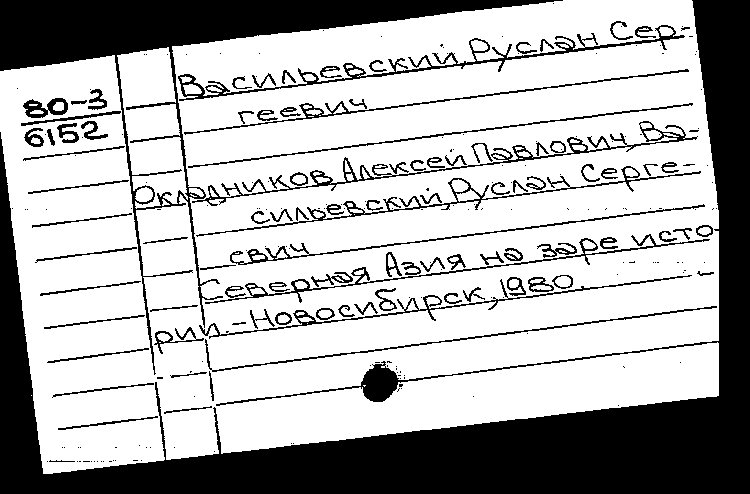 Васильевский, Руслан Сер-
геевич
80-3
6152
Окладников, Алексей Павлович, Ва-
сильевский, Руслан Серге-
евич
Северная Азия на заре исто-
рии. - Новосибирск, 1980.